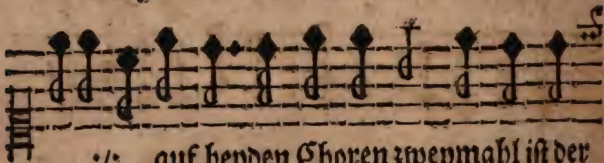 :/: auf beyden Choren zweymahl ist der